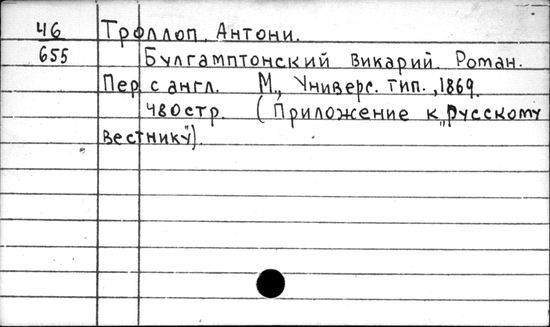 46 Троллоп Антони.
655 Булгамптонский викарий. Роман.
Пер с англ. М., Универс. тип., 1869.
480стр. (Приложение к „Русскому
вестнику").